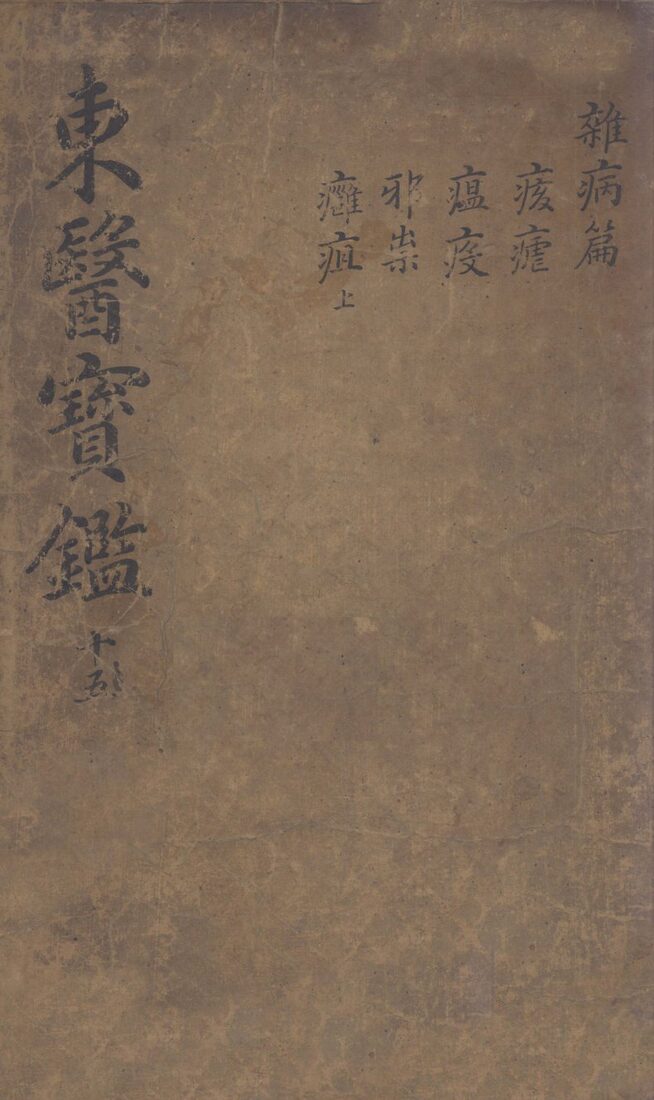 雜病篇
痎瘧
瘟疫
邪祟
癰疽 上
東醫寶鑑 十五